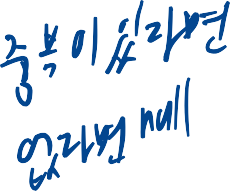 중복이 있다면
없다면 null